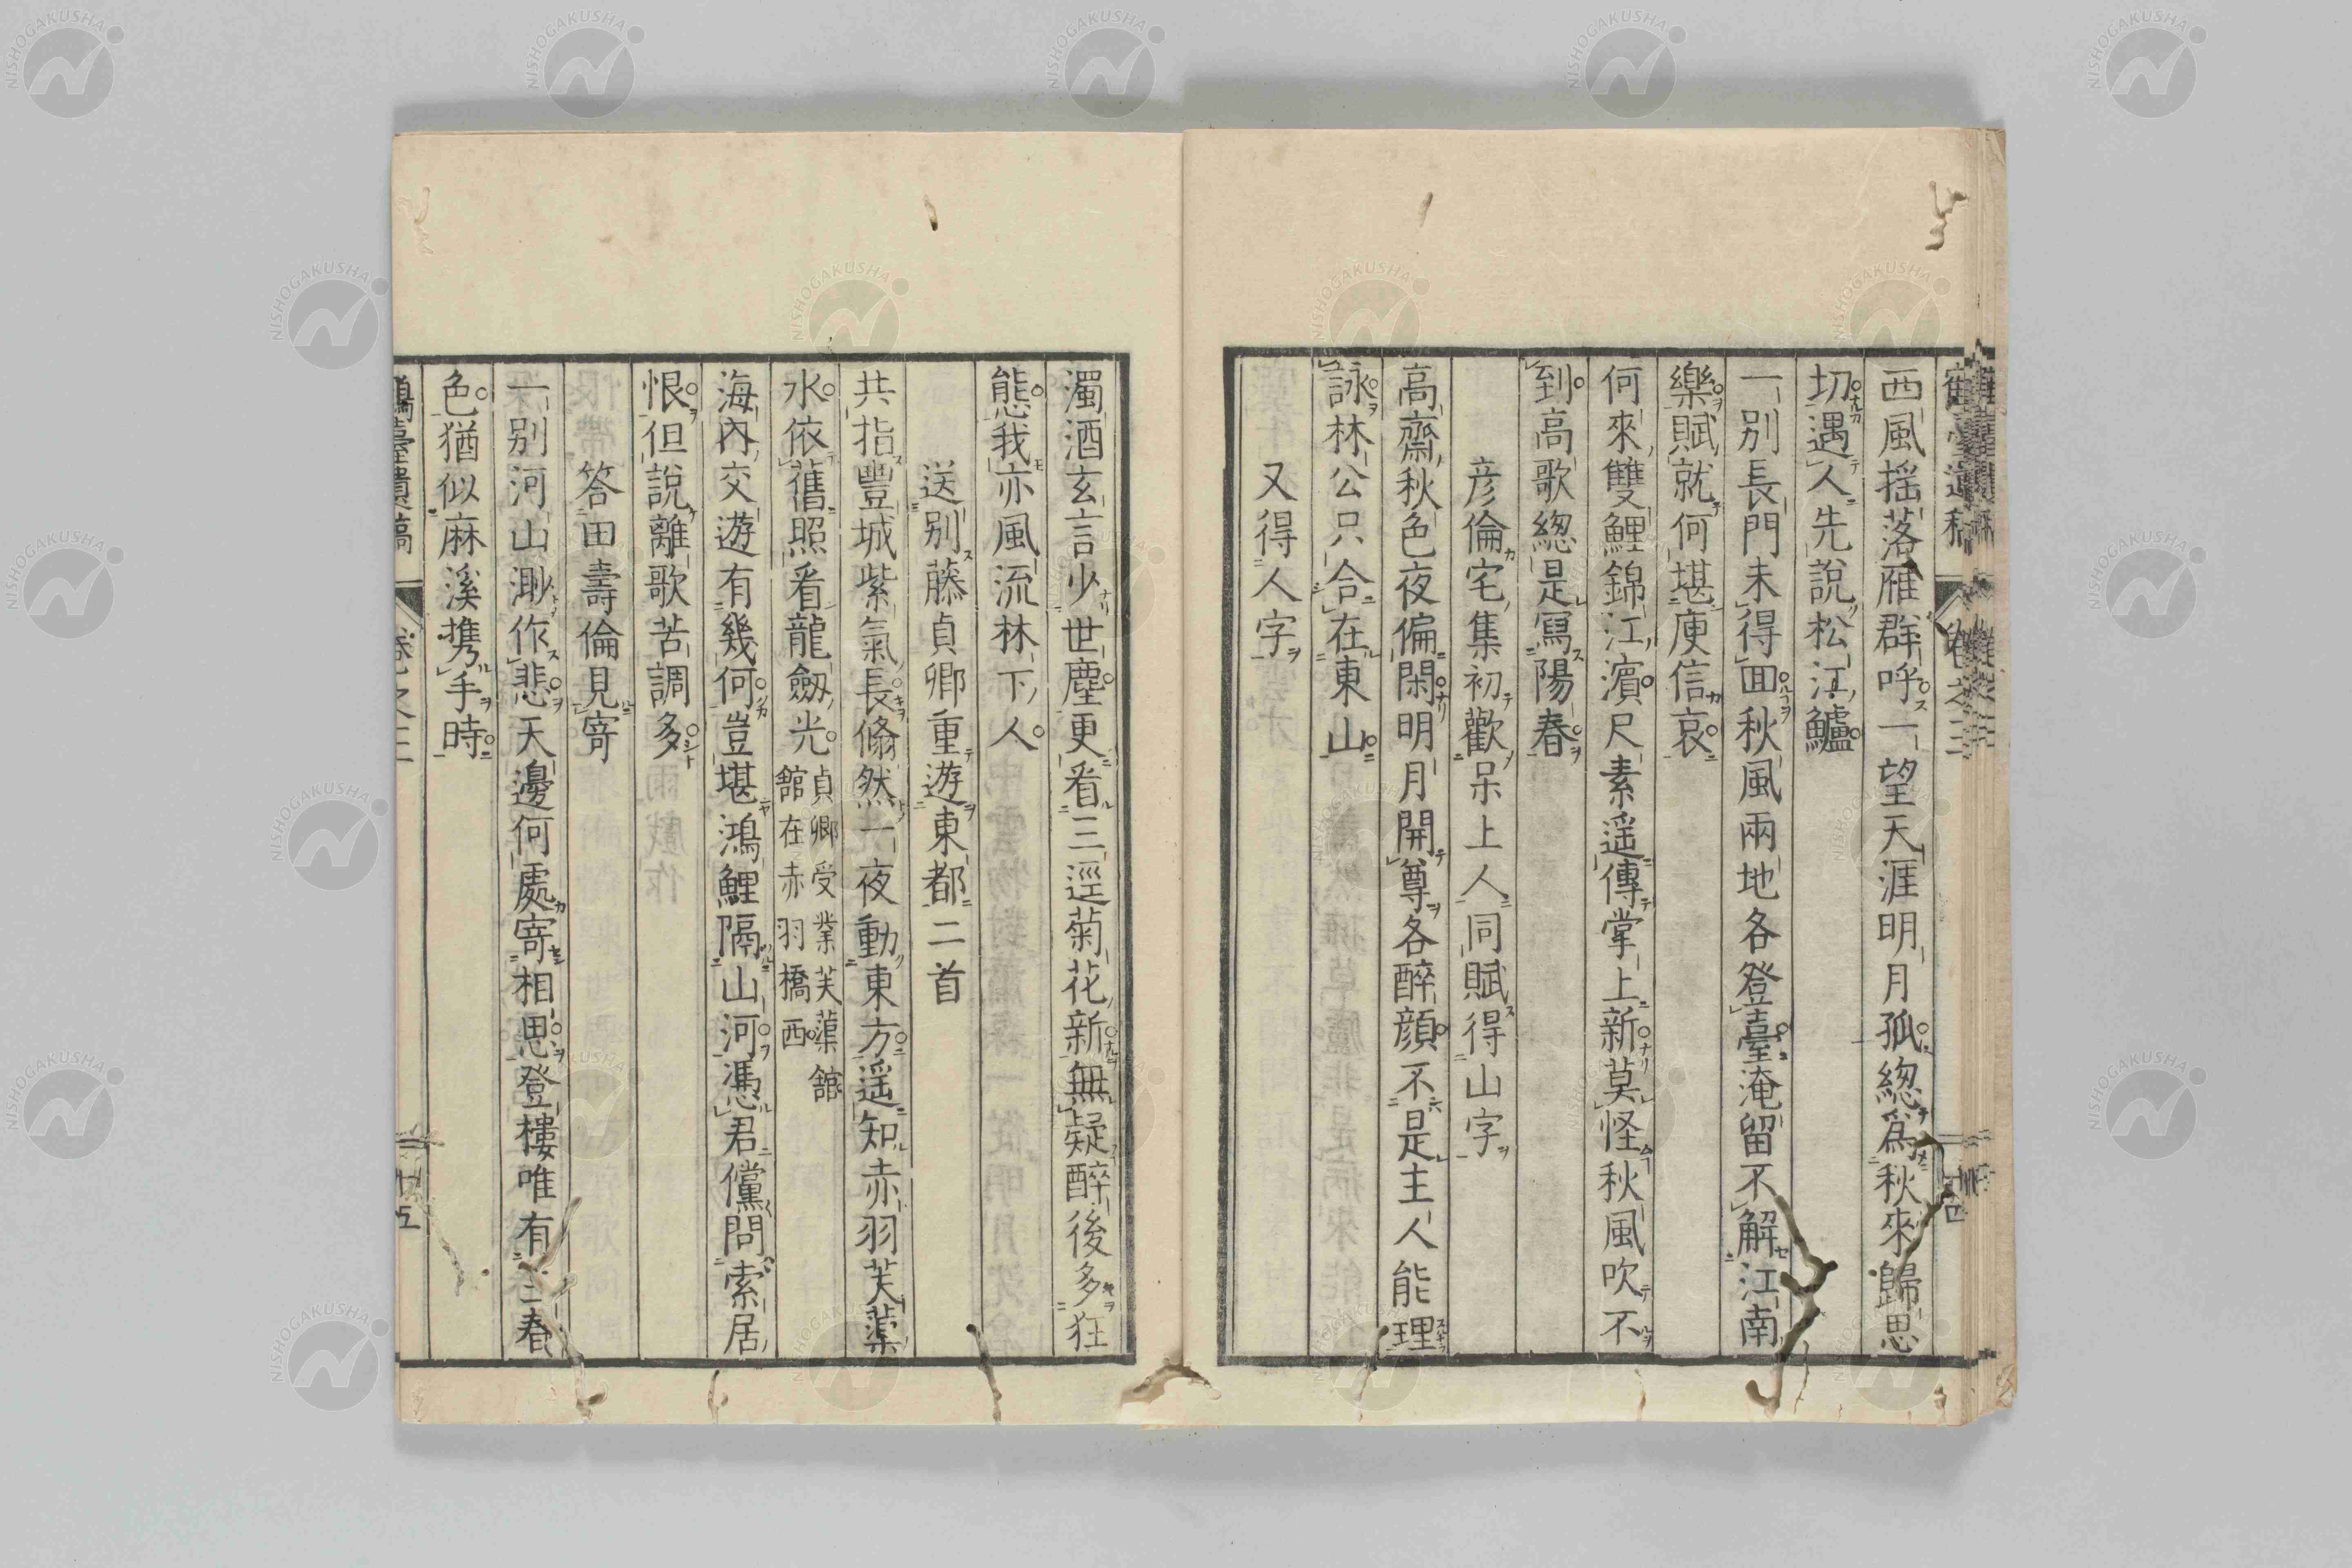 西風揺落雁群呼一望天涯明月孤總爲秋來歸思
切遇人先說松江鱸
一別長門未得面秋風兩地各登臺淹留不解江南
樂賦就何堪庾信哀
何來雙鯉錦江濱尺素遥傳掌上新莫怪秋風吹不
到高歌總是寫陽春
彦倫宅集初歡呆上人同賦得山字
高齋秋色夜偏閑明月開尊各醉顔不是主人能理
詠林公只合在東山
又得人字
濁酒玄言少世塵更看三逕菊花新無疑醉後多狂
態我亦風流林下人
送別藤貞卿重遊東都二首
共指豐城紫氣長翛然一夜動東方遥知赤羽芙蕖
水依舊照看龍劔光貞卿受業芙蕖館
館在赤羽橋西
海內交遊有幾何豈堪鴻鯉隔山河憑君儻問索居
恨但說離歌苦調多
答田壽倫見寄
一別河山渺作悲天邊何處寄相思登樓唯有三春
色猶似麻溪携手時
卷之三
NISHOGAKUSHA